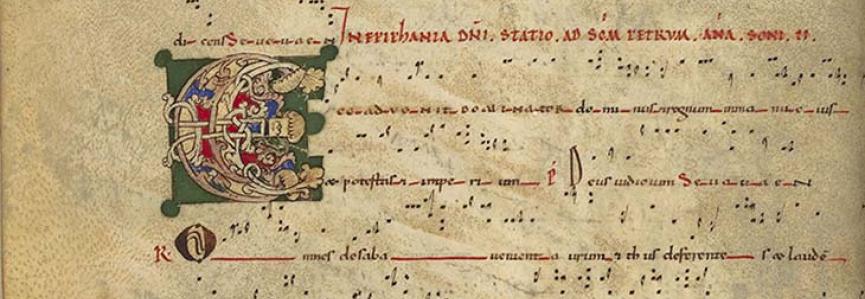 di cens Seuouaen IN EPIPHANIA DNI. STATIO. AD SCM PETRUM. ANA. SONI. II.
Ecce aduenit dominator dominus & regnum inmanu eius
& potestas & imperium P Deus iudicium Seuouaen
R. Omnes desaba uenient aurum & thus deferentes & laudē